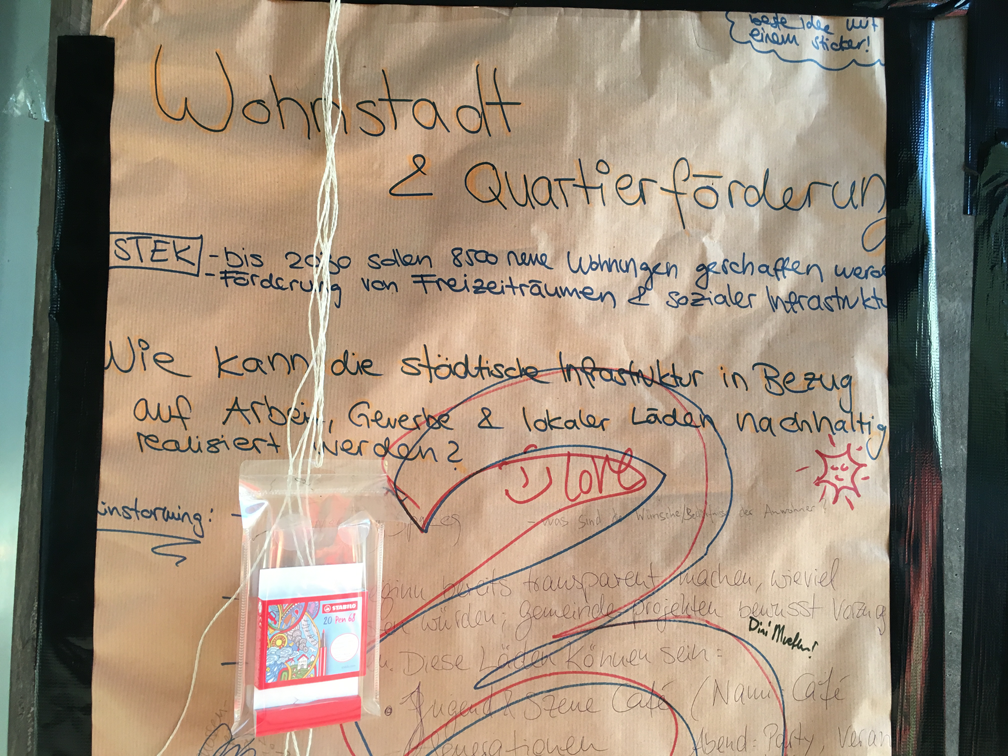 beste Idee mit
einem sticker!
Wohnstadt
& Quartierförderung
STEK - bis 2030 sollen 8500 neue Wohnungen geschaffen werde
- Förderung von Freizeiträumen & sozialer Infrastruktu
Wie kann die städtische Infrastruktur in Bezug
auf Arbeit, Gewerbe & lokaler Läden nachhaltig
realisiert werden?
love
instorming: -
- was sind die Wünsche der Anwohner?
bereits transparent machen, wieviel
wurden, gemeinde projekten bewusst Vorzug
Dini Mueter!
- Diese Läden können sein:
• Jugend & Szene Café / Nami Café
Generationen Abend: Party, Verein
STABILO
20 Pen 68